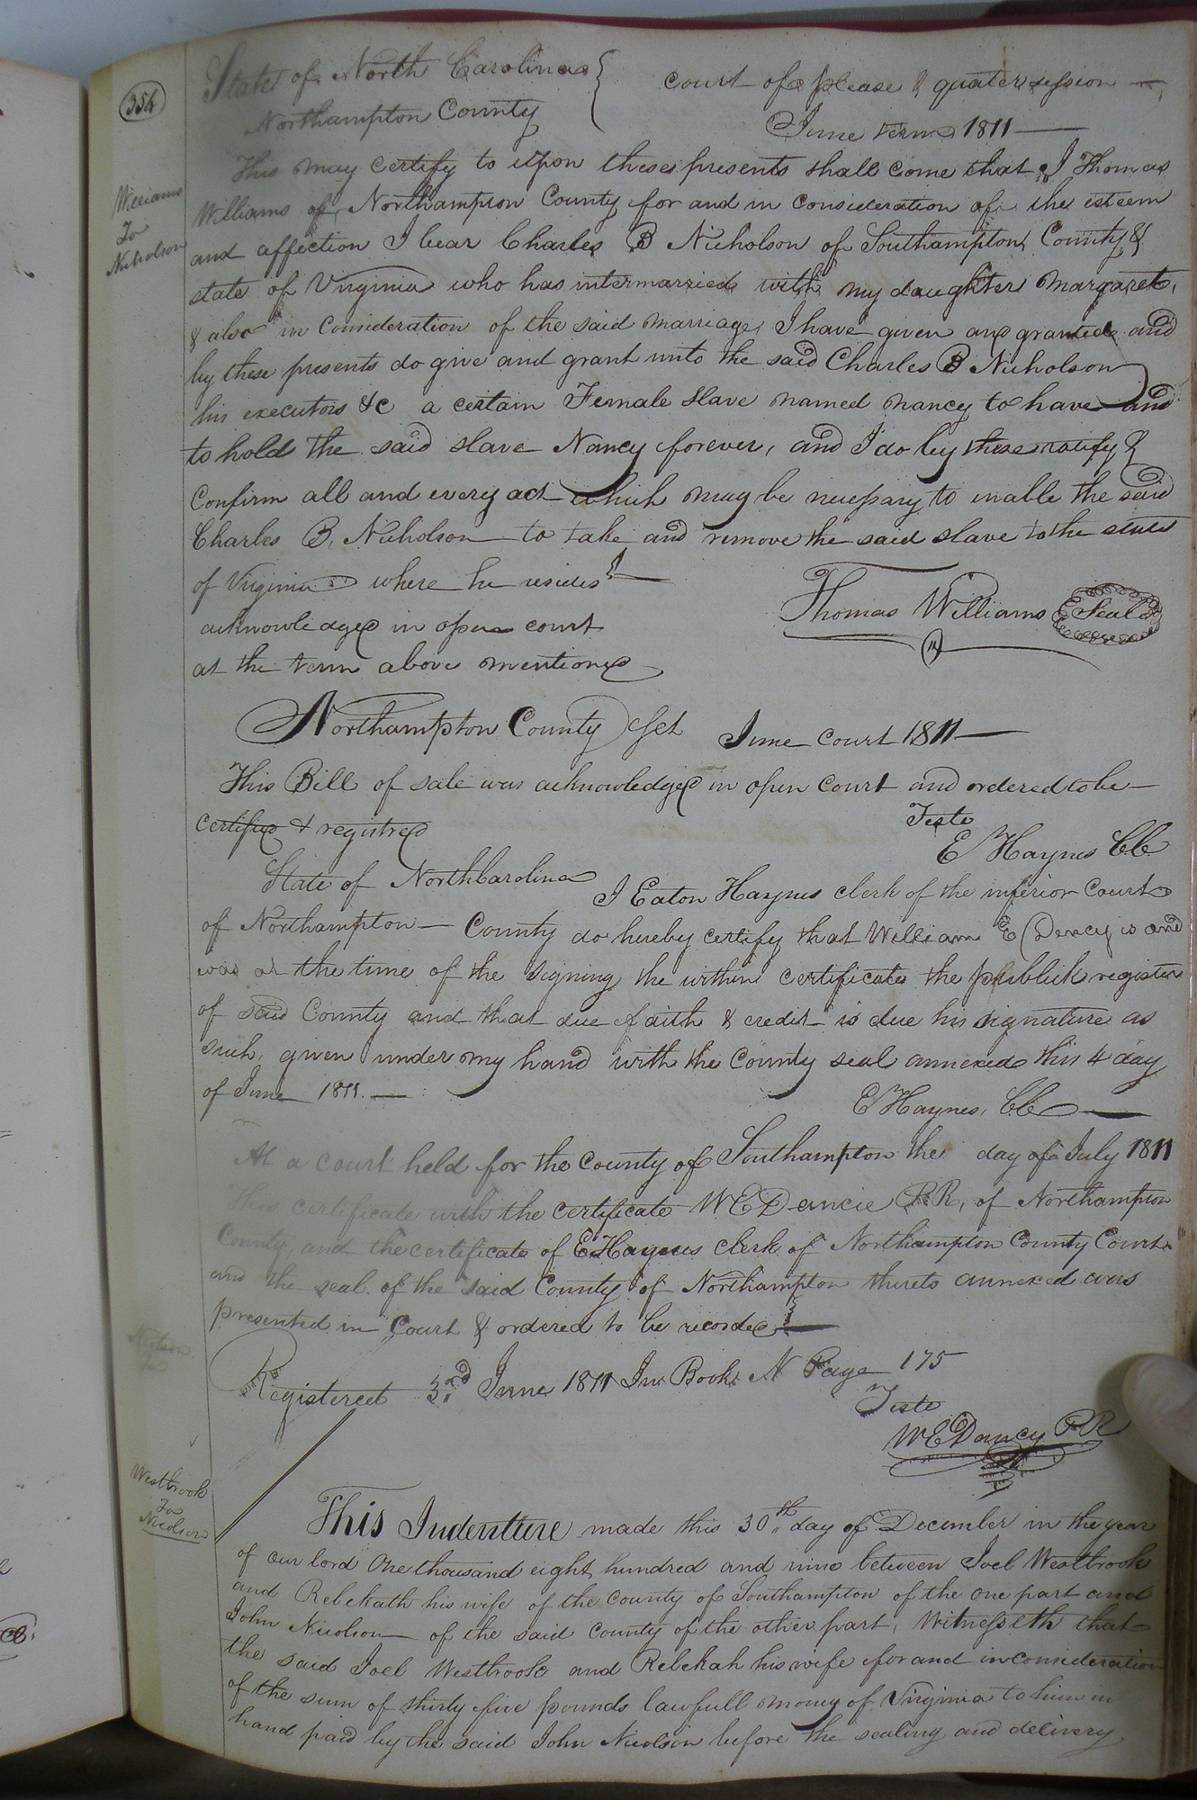 354
State of North Carolina
Northampton County
court of please & quater session
June term 1811
Williams
To
Nicholson
This may certify to upon these presents shall come that I Thomas
Williams of Northampton County for and in consideration of the esteem
and affection I bear Charles B Nicholson of Southampton County &
state of Virginia who has intermarried with my daughter Margaret,
& also in consideration of the said marriage, I have given and granted and
by these presents do give and grant unto the said Charles B Nicholson
his executors &c a certain Female slave named nancy to have and
to hold the said slave Nancy forever, and I do by these ratify &
Confirm all and every act which may be necessary to inable the said
Charles B. Nicholson to take and remove the said slave to the state
of Virginia where he resides
Thomas Williams Seal
acknowledged in open court
at the term above mentioned
Northampton County Sct June Court 1811
This Bill of sale was acknowledged in open court and ordered to be
certified & registred
Teste
E Haynes CC
State of North Carolina
I Eaton Haynes clerk of the inferior Court
of Northampton County do hereby certify that William E Dancy is and
was at the time of the signing the within certificate the publick register
of said County and that due faith & credit is due his signature as
such, given under my hand with the County seal annexed this 4 day
of June 1811.
E Haynes, CC
At a court held for the county of Southampton the day of July 1811
This certificate with the certificate W E Dancie P.R, of Northampton
County, and the certificate of E Haynes clerk of Northampton County Court
and the seal of the said County of Northampton thereto annexed was
presented in Court & ordered to be recorded
Registered 3rd June 1811 In Book N Page 175
Teste
W E Dancy P R
Westbrook
To
Nicolson
This Indenture made this 30th day of December in the year
of our lord One thousand eight hundred and nine between Joel Westbrook
and Rebekath his wife of the county of Southampton of the one part and
John Nicolson of the said County of the other part, Witnesseth that
the said Joel Westbrook and Rebekah his wife for and in consideration
of the sum of thirty five pounds lawfull money of Virginia to him in
hand paid by the said John Nicolson before the sealing and delivery